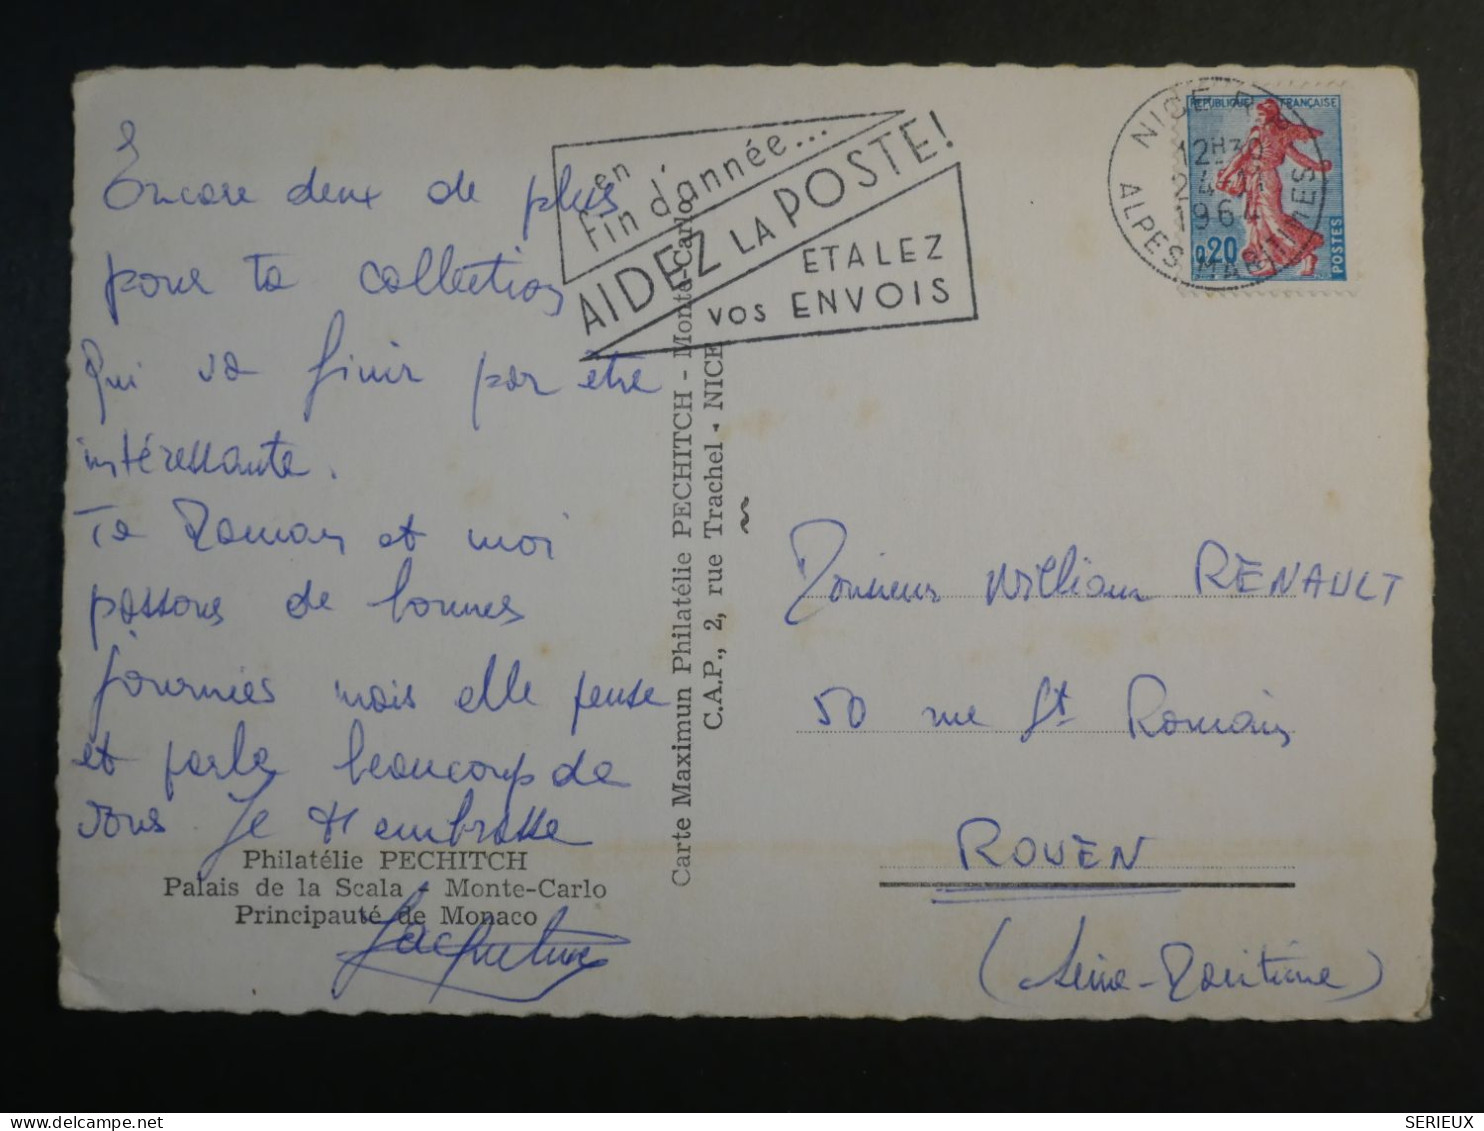 Encore deux de plus
pour ta collection
Qui va finir par être
intéressante.
Ta Maman et moi
passons de bonnes
journées mais elle pense
et parle beaucoup de
vous Je t'embrasse
Jacqueline
Philatélie PECHITCH
Palais de la Scala - Monte-Carlo
Principauté de Monaco
en
fin d'année...
AIDEZ LA POSTE!
ETALEZ
VOS ENVOIS
Carte Maximun Philatélie PECHITCH - Monte-Carlo
C.A.P., 2, rue Trachel - NICE
NICE
12H30
1964
ALPES MARITIMES
REPUBLIQUE FRANÇAISE
0,20
POSTES
Monsieur William RENAULT
50 rue St Romain
ROUEN
(Seine-Maritime)
SERIEUX